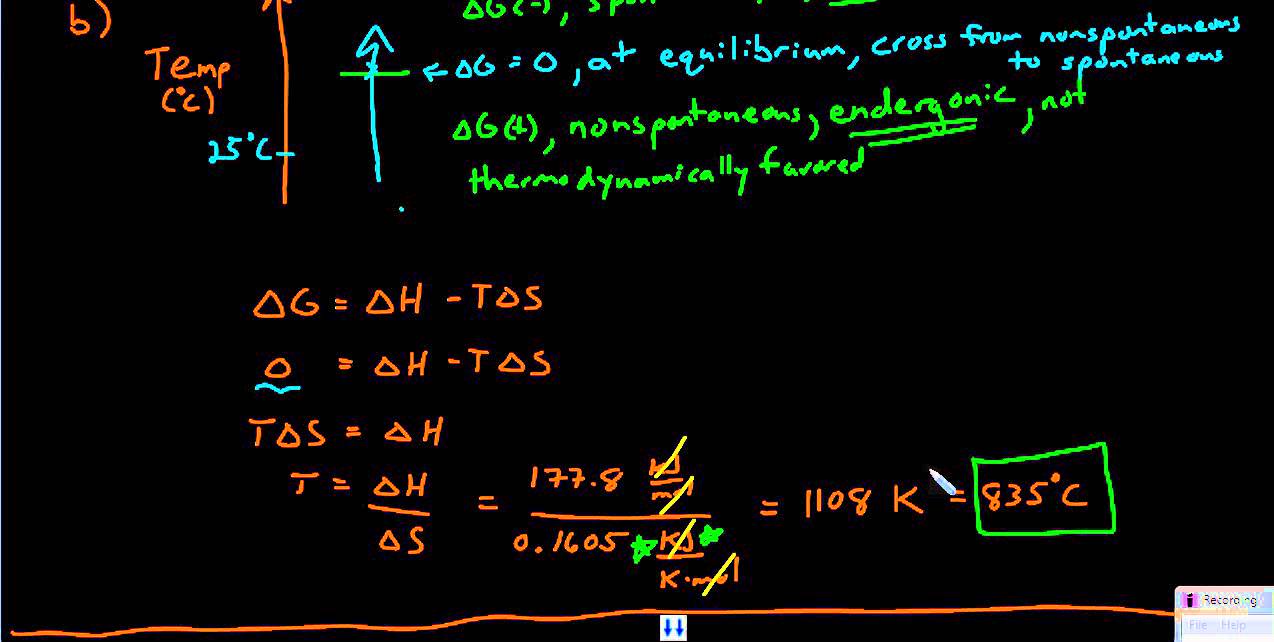 b)
ΔG(-),
Temp
(°C)
← ΔG = 0, at equilibrium, cross from nonspontaneous
to spontaneous
ΔG(+), nonspontaneous, endergonic, not
thermodynamically favored
25°C
ΔG = ΔH - TΔS
0 = ΔH - TΔS
TΔS = ΔH
T = ΔH/ΔS = 177.8 kJ/mol / 0.1605 * kJ/K·mol * = 1108 K = 835°C
Recording
File Help